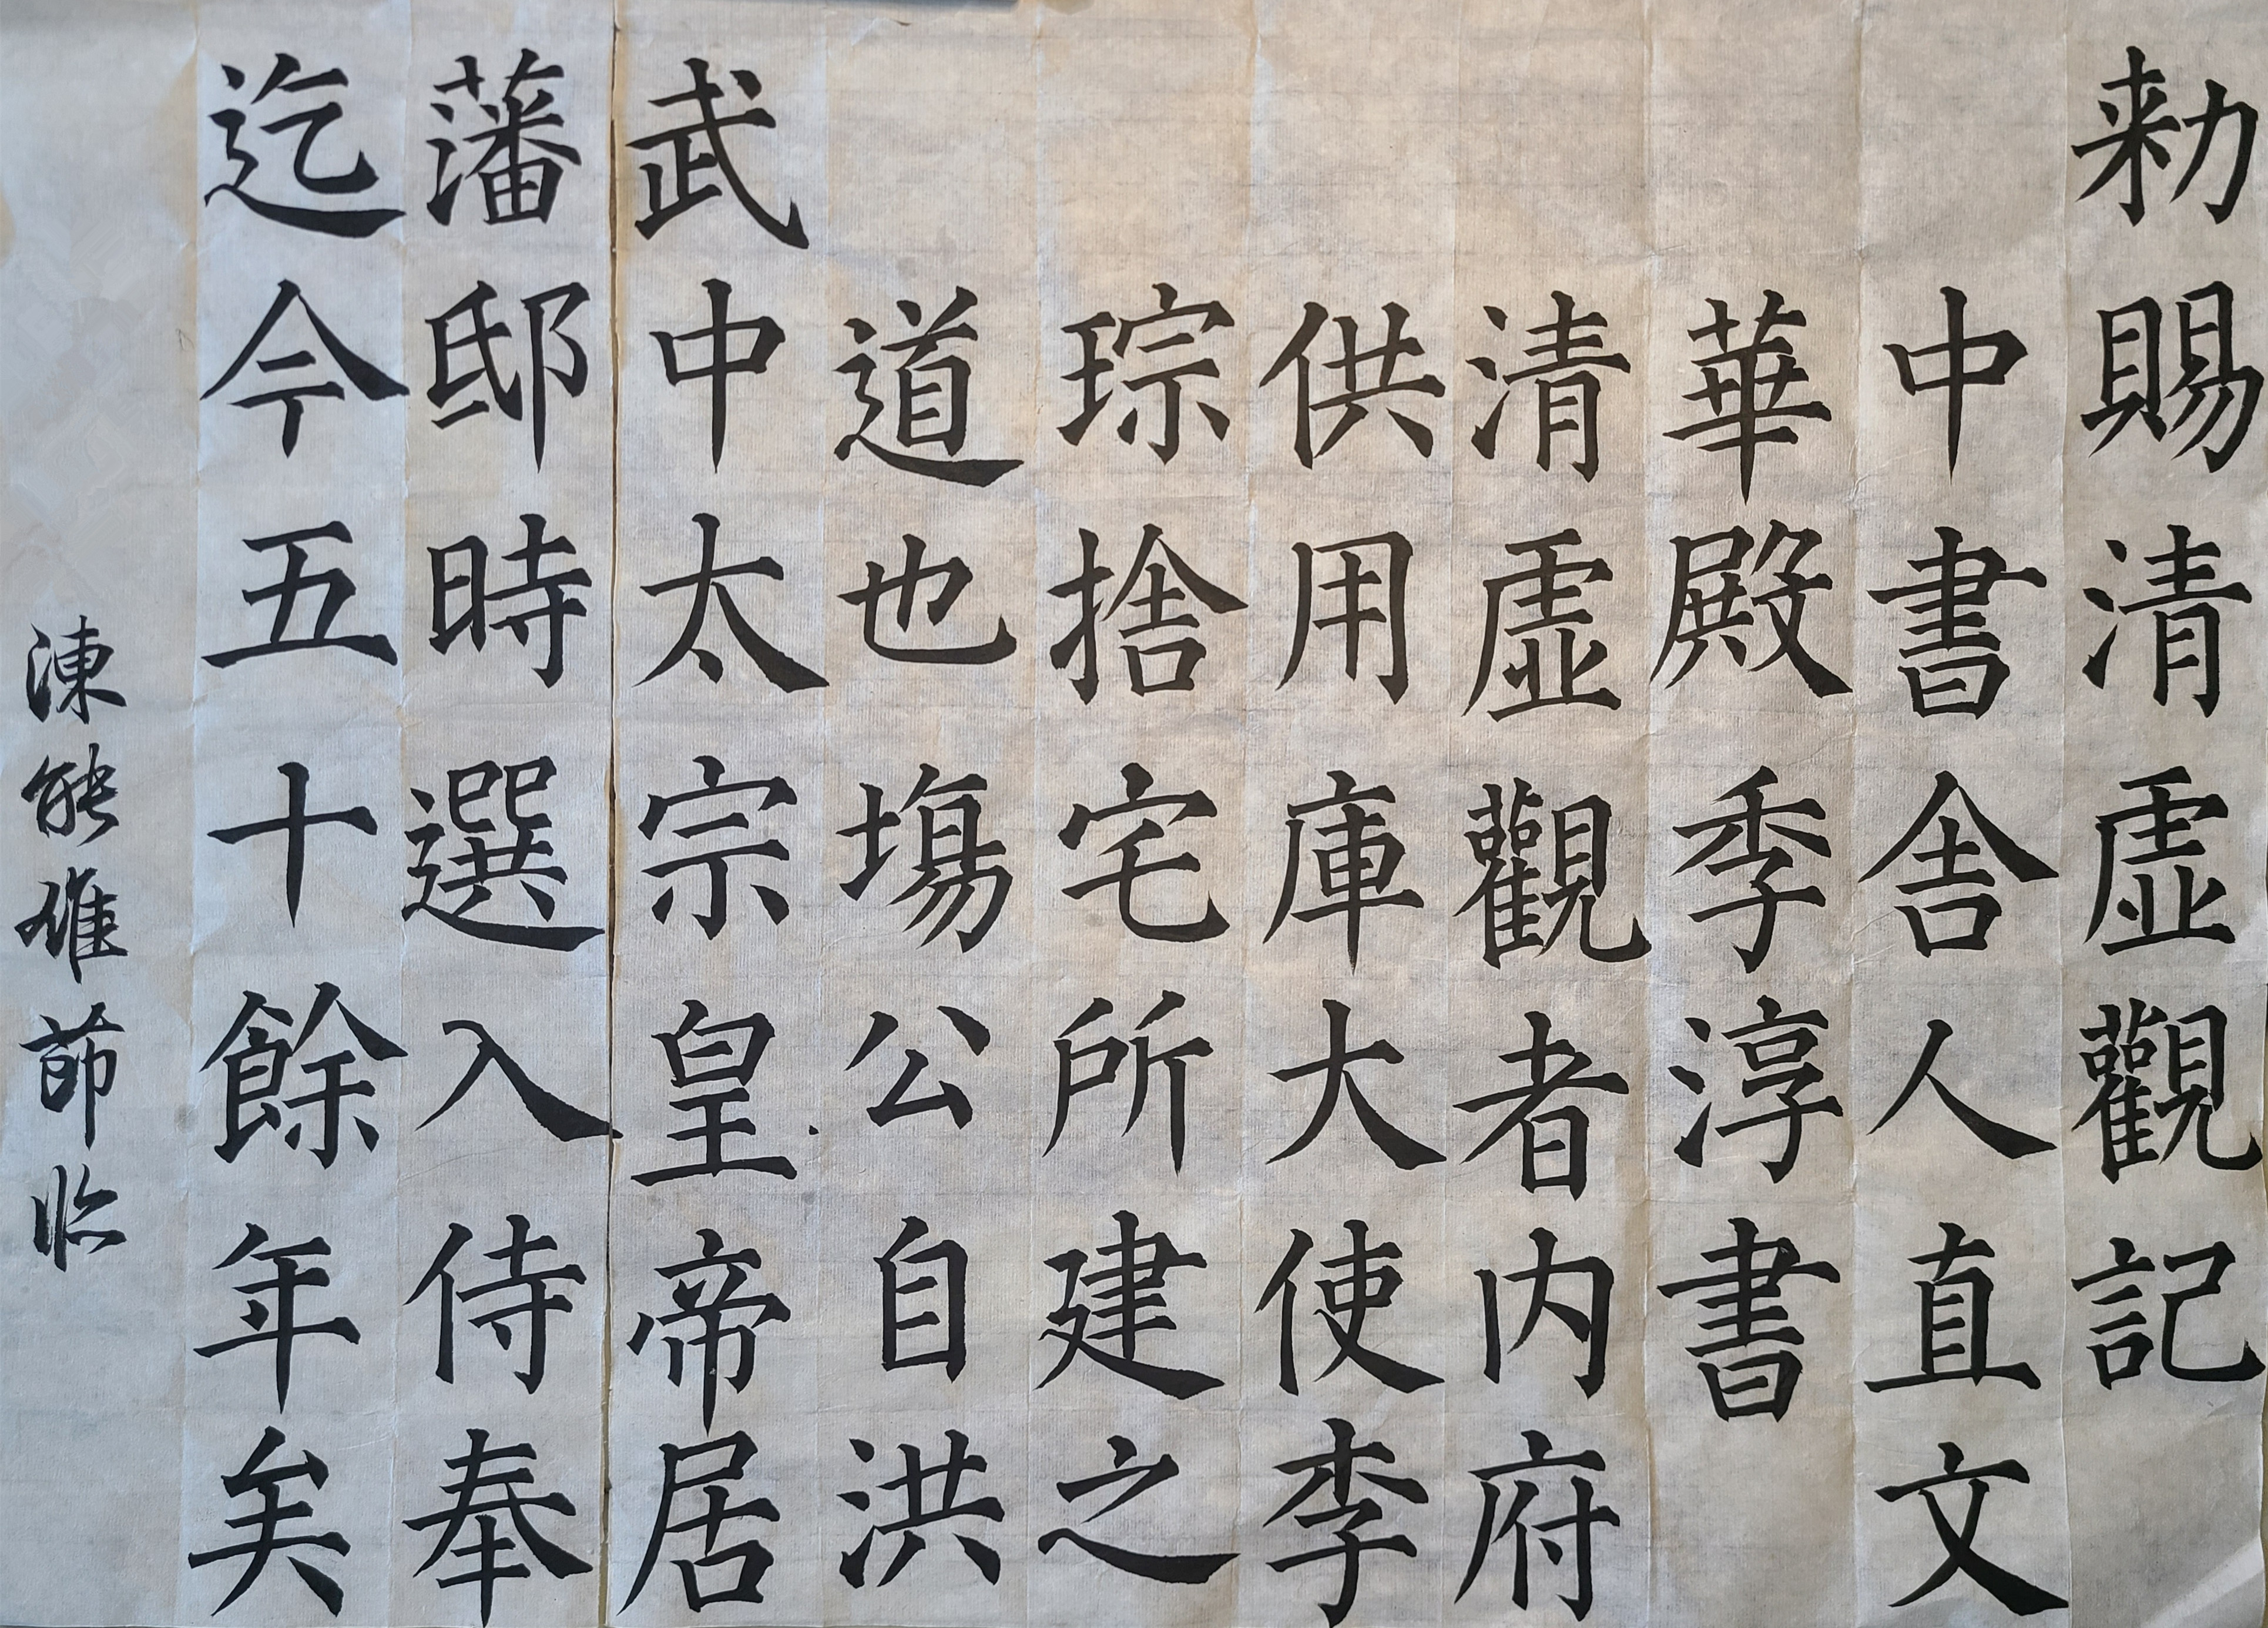 勑賜清虛觀記
中書舍人直文
華殿季淳書
清虛觀者内府
供用庫大使李
琮捨宅所建之
道也塲公自洪
武中太宗皇帝居
藩邸時選入侍奉
迄今五十餘年矣
涷能莭临